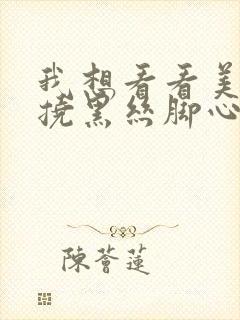 我想看看美
挠黑丝脚心
陳薈蓮